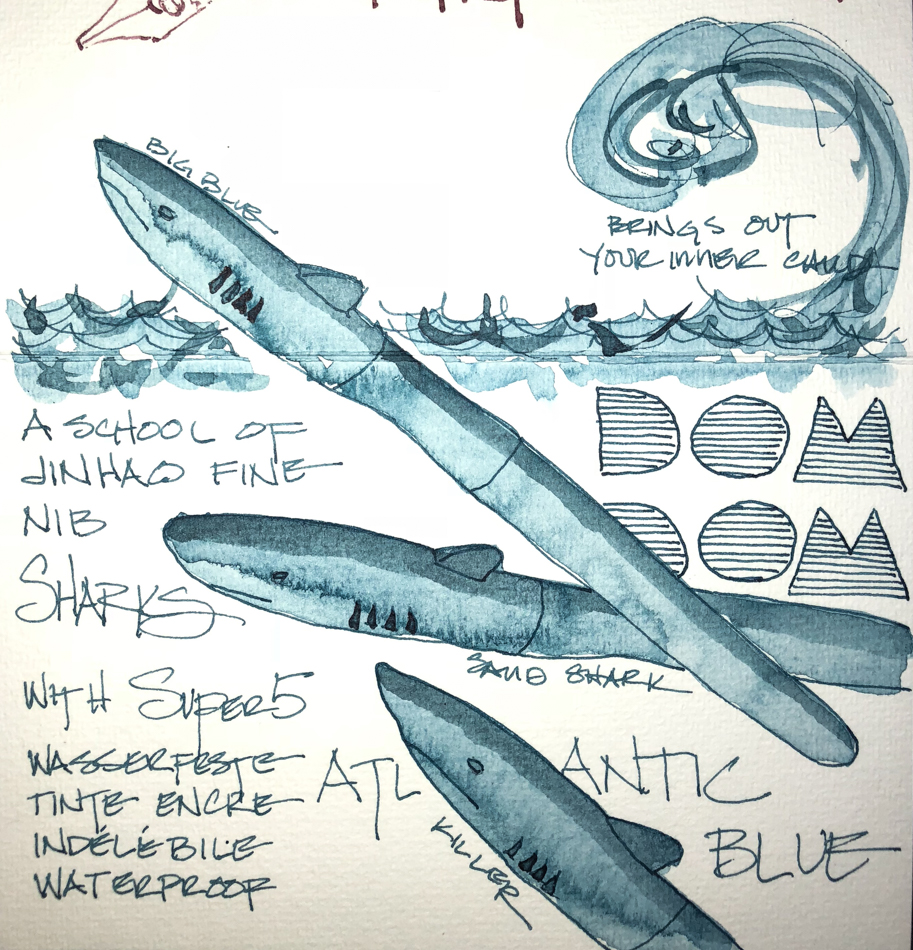 BIG BLUE
BRINGS OUT
YOUR INNER
A SCHOOL OF
JINHAO FINE
NIB
SHARKS
DOM
DOM
SAND SHARK
WITH SUPER5
WASSERFESTE
TINTE ENCRE
INDÉLÉBILE
WATERPROOF
ATLANTIC
BLUE
KILLER